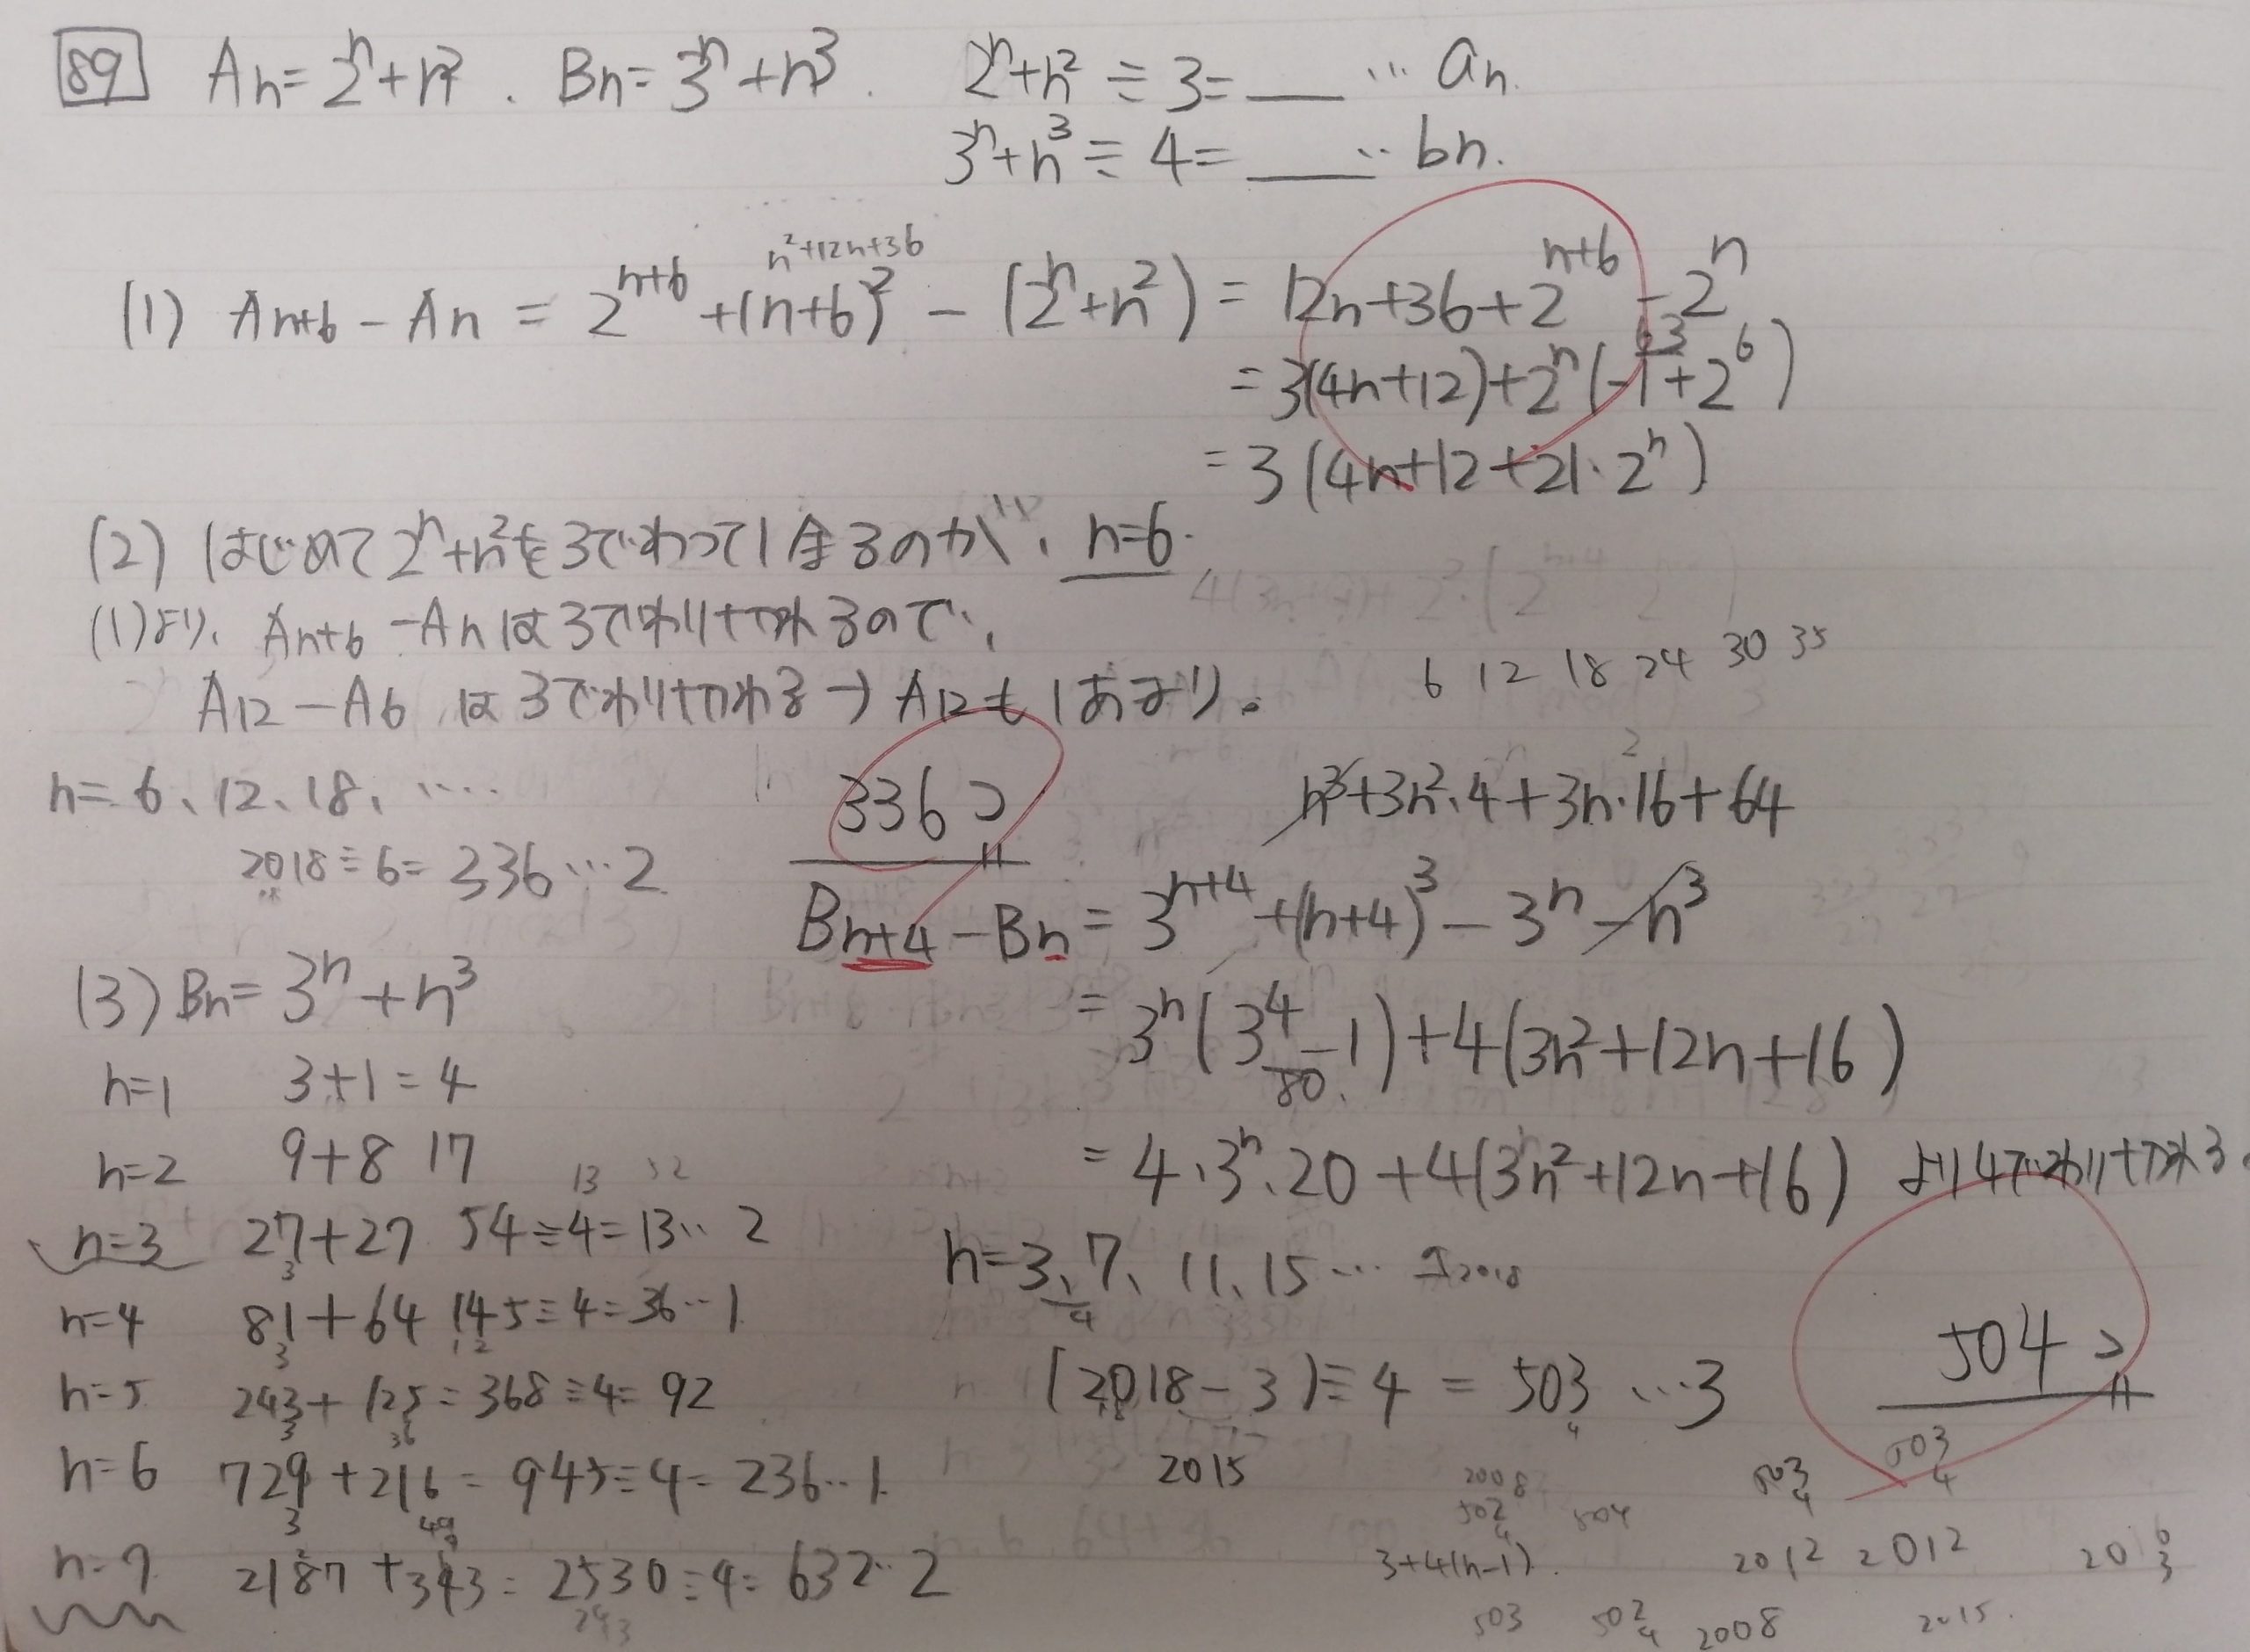 89 An=2ⁿ+n². Bn=3ⁿ+n³. 2ⁿ+n²÷3=___…an.
3ⁿ+n³÷4=___…bn.
n²+12n+36
(1) An+6-An=2ⁿ⁺⁶+(n+6)²-(2ⁿ+n²)=12n+36+2ⁿ⁺⁶-2ⁿ
63
=3(4n+12)+2ⁿ(-1+2⁶)
=3(4n+12+21·2ⁿ)
(2) はじめて2ⁿ+n²を3でわって1余るのが、n=6.
(1)より、An+6-Anは3でわりきれるので、
A12-A6は3でわりきれる→A12も1あまり。
6 12 18 24 30 35
n=6、12、18、…
336コ
2018÷6=336…2
n³+3n²·4+3n·16+64
Bn+4-Bn=3ⁿ⁺⁴+(n+4)³-3ⁿ-n³
=3ⁿ(3⁴-1)+4(3n²+12n+16)
80
=4·3ⁿ·20+4(3n²+12n+16) より4でわりきれる.
(3) Bn=3ⁿ+n³
n=1 3+1=4
n=2 9+8 17
n=3 27+27 54÷4=13…2
n=4 81+64 145÷4=36…1
n=5 243+125=368÷4=92
n=6 729+216=945÷4=236…1
n=7 2187+343=2530÷4=632…2
n=3、7、11、15…
4
(2018-3)÷4=503…3
2015
504コ
503
4
503
4
2008
502
4
504
3+4(n-1).
2012 2012
503 502
4
2008 2015.